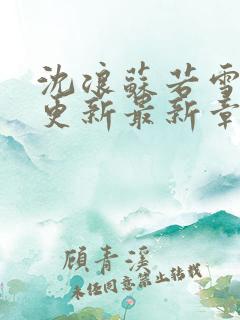 沈浪蘇若雪
更新最新章
顧青溪
未经同意禁止转载